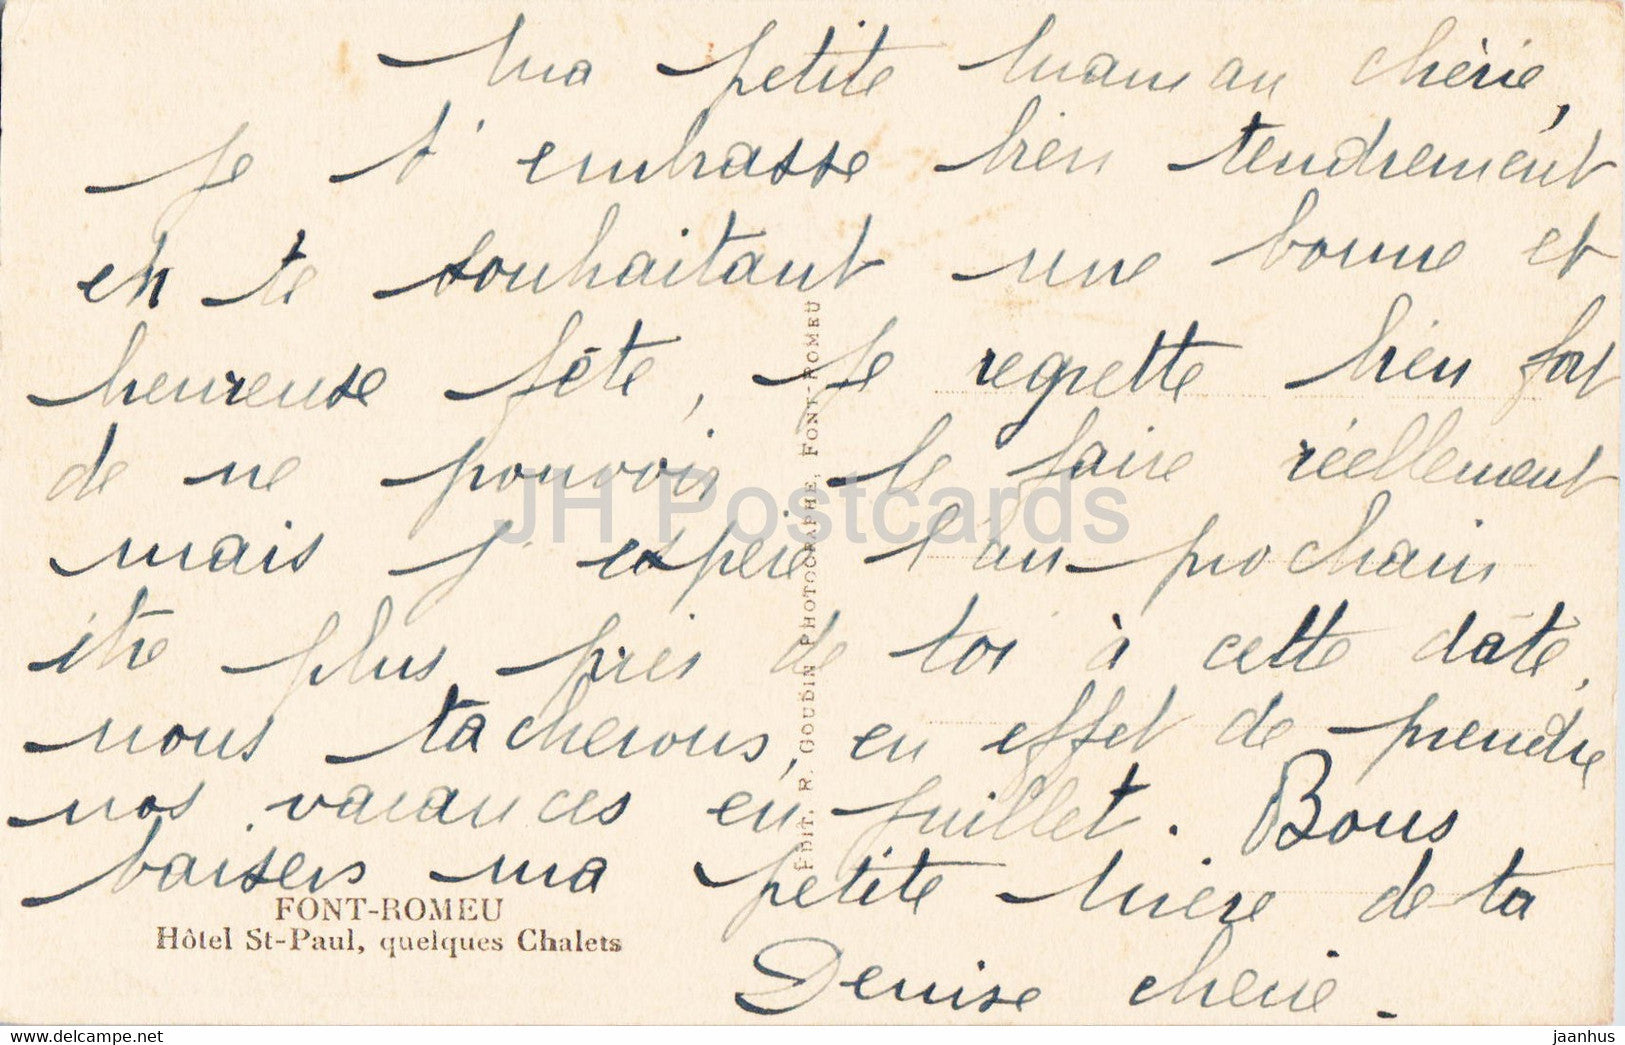 Ma petite maman chérie,
Je t'embrasse bien tendrement
en te souhaitant une bonne et
heureuse fête, je regrette bien fort
de ne pouvoir le faire réellement
mais j'espère l'an prochain
être plus près de toi à cette date,
nous tacherons, en effet de prendre
nos vacances en juillet. Bons
baisers ma petite mère de ta
Denise chérie.
FONT-ROMEU
Hôtel St-Paul, quelques Chalets
EDIT. R. GOUDIN PHOTOGRAPHE, FONT-ROMEU
JH Postcards
jaanhus